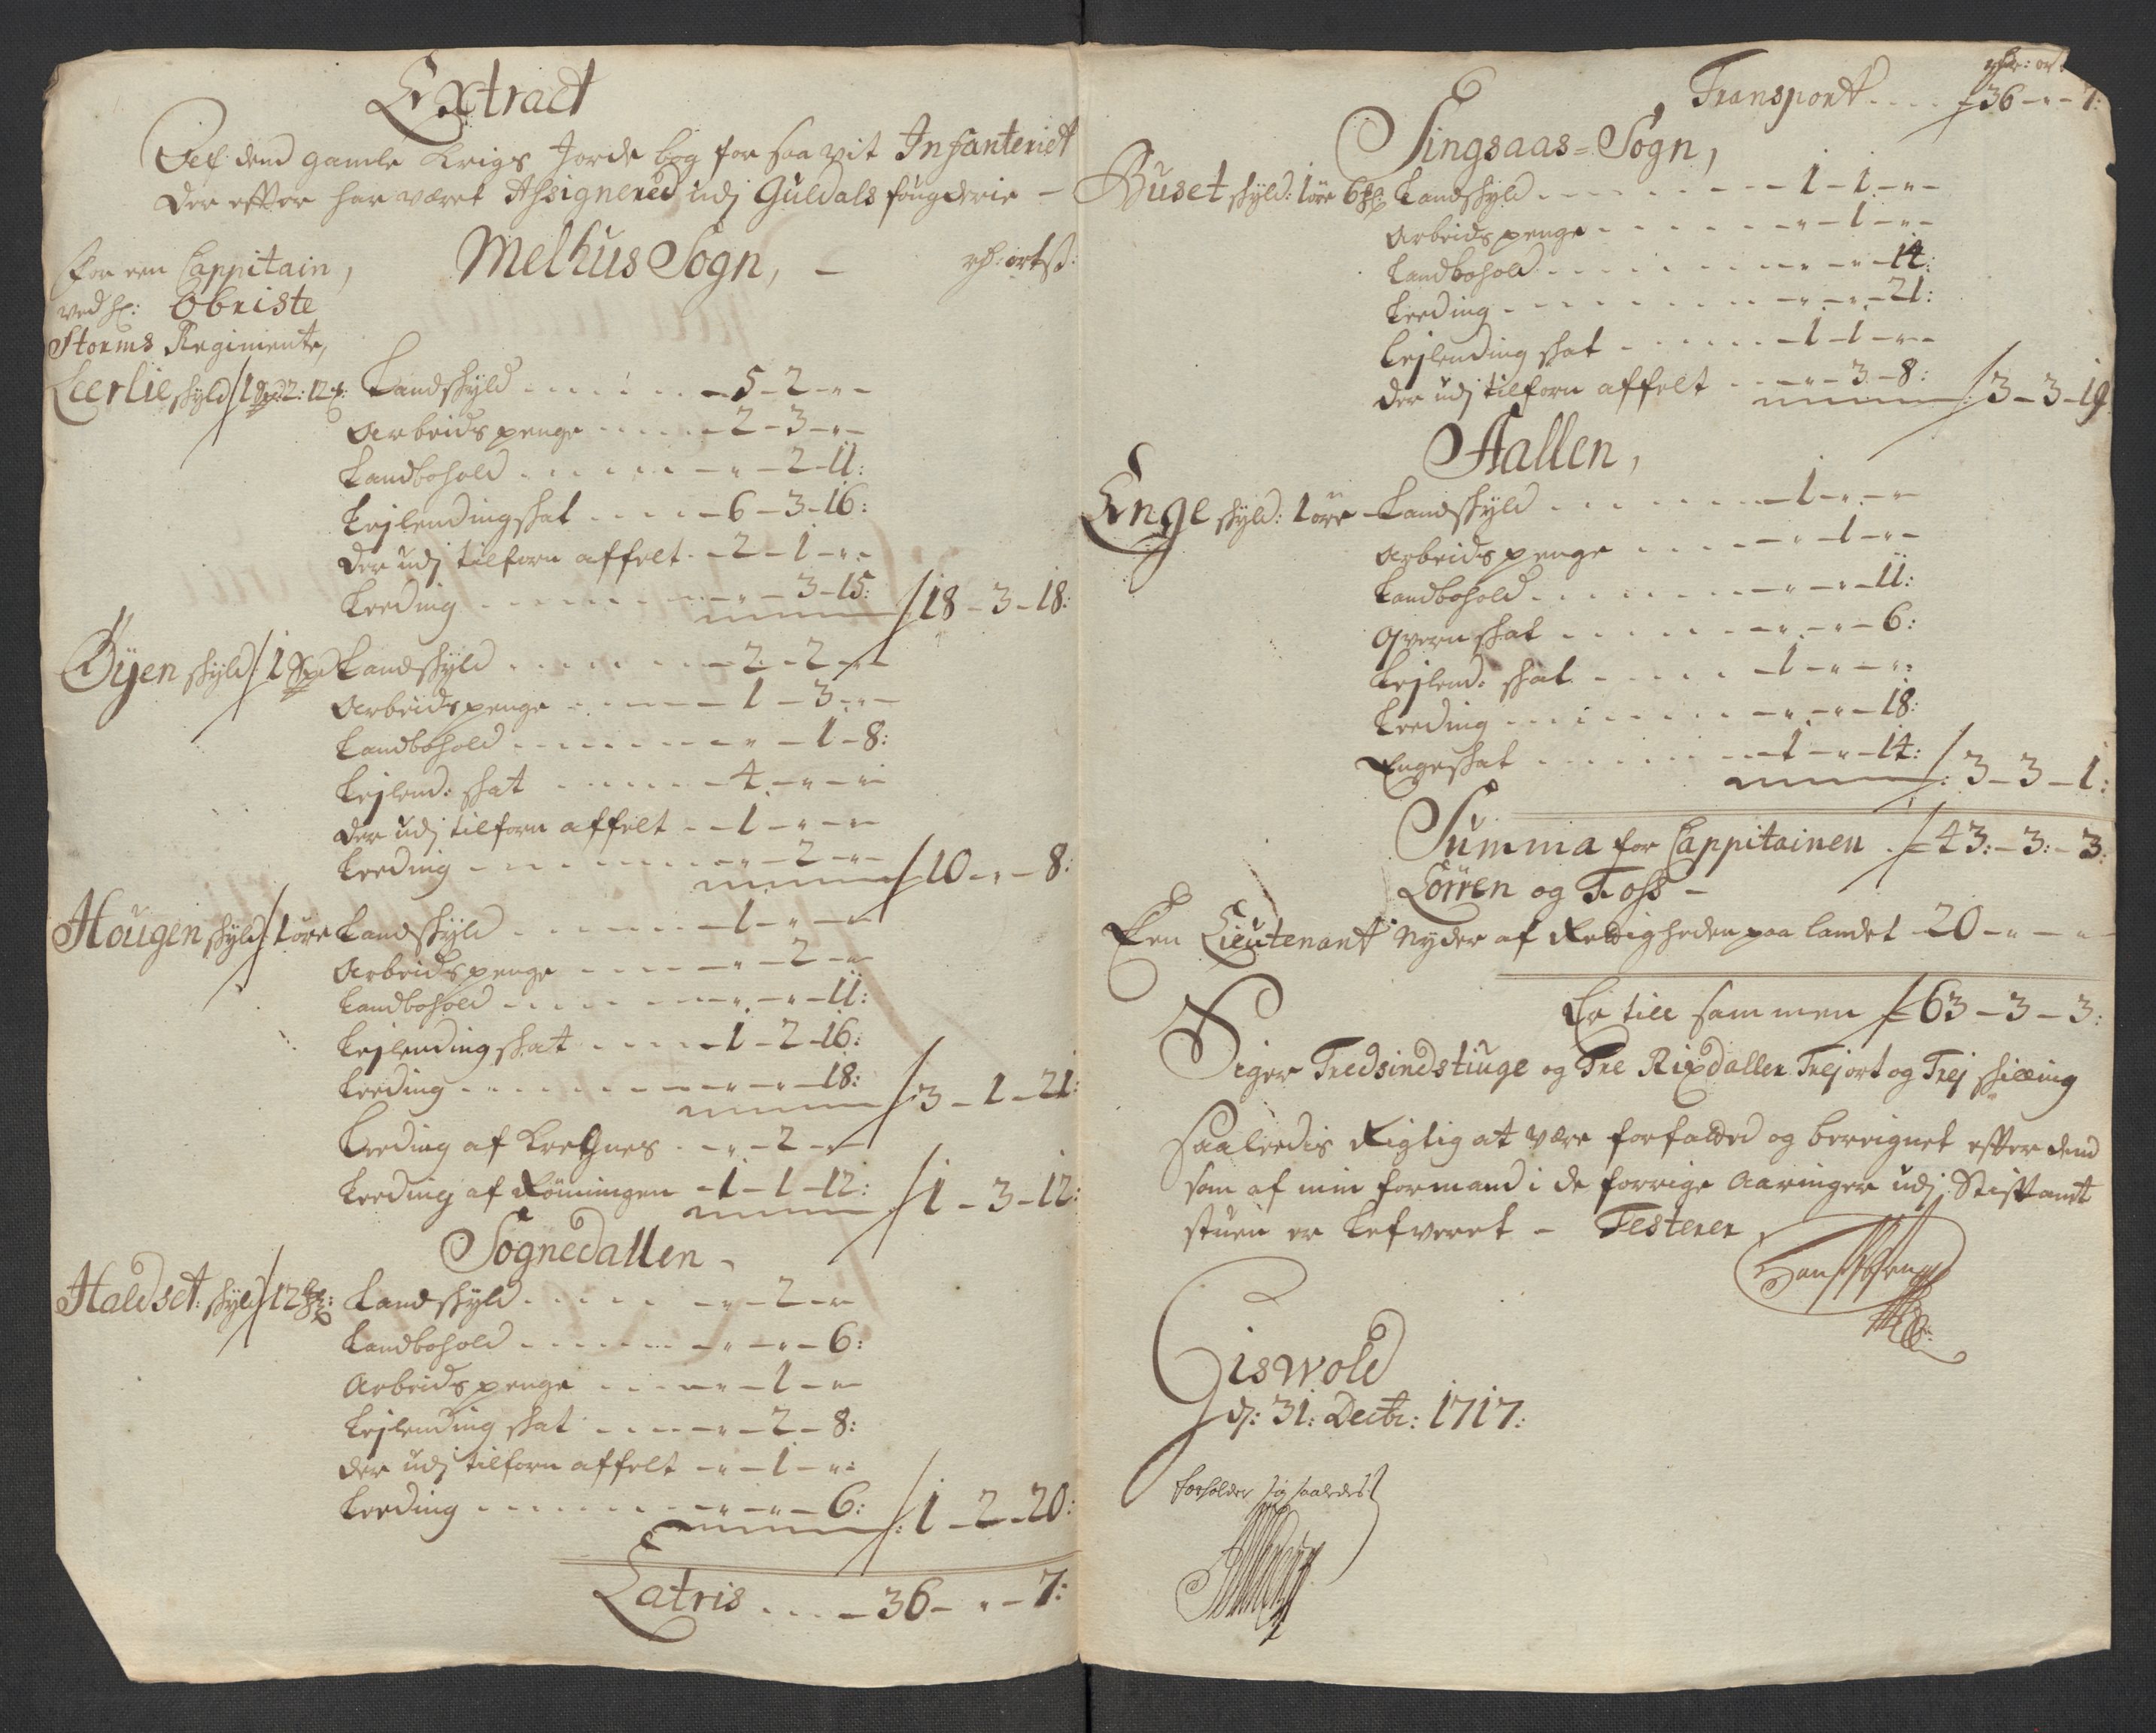 Extract
Aff dend gamle Krigs Jorde bog for saa vit Infanteriet
der efter har været Assignered udj Guldals fougderie –
Melhus Sogn, – rd: ort ß:
For een Cappitain,
ved H: Obriste
Storms Regimente,
Leerlie skyld 1 Spd 2: 12 Landskyld . . . . 5 – 2 – " –
Arbeids penge . . . . . 2 – 3 – " –
Landbohold . . . . . – " – 2 – 11:
Lejlending skat . . . . – 6 – 3 – 16:
der udj tilforn affelt . – 2 – 1 – " –
Leeding . . . . . – " – 3 – 15: / 18 – 3 – 18:
Øyen skyld / 1 Spd Landskyld . . . . . – 2 – 2 – " –
Arbeids penge . . . . – 1 – 3 – " –
Landbohold . . . . . – " – 1 – 8:
Lejlend: skat . . . . . – 4 – " – " –
der udj tilforn affelt . . – 1 – " – " –
Leeding . . . . . – " – 2 – " – / 10 – " – 8:
Hougen skyld / 1 øre Landskyld . . . . . – 1 – " – " –
Arbeids penge . . . . . – " – 2 – " –
Landbohold . . . . . – " – " – 11:
Lejlending skat . . . . – 1 – 2 – 16:
Leeding . . . . . – " – " – 18: / 3 – 1 – 21:
Leeding af Kregnes . . – " – 2 – " –
Leeding af Rønningen – 1 – 1 – 12: / 1 – 3 – 12:
Sognedallen –
Haldset: skyld / 12 Landskyld . . . . . – " – 2 – " –
Landbohold . . . . . – " – " – 6:
Arbeids penge . . . . – " – 1 – " –
Lejlending skat . . . . – " – 2 – 8:
der udj tilforn affelt – " – 1 – " –
Leeding . . . . . – " – " – 6: / 1 – 2 – 20:
Latris . . . . – 36 – " – 7:
rdr: ort
Transport . . . . 36 – " – 7:
Singsaas = Sogn,
Buset skyld: 1 øre 6 Landskyld . . . . . – 1 – 1 – " –
Arbeids penge . . . . . – " – 1 – " –
Landbohold . . . . . – " – " – 14:
Leeding . . . . . – " – " – 21:
Lejlending skat . . . . . – 1 – 1 – " –
der udj tilforn affelt . . – " – 3 – 8: / 3 – 3 – 19
Aallen,
Enge skyld: 1 øre – Landskyld . . . . . – 1 – " – " –
Arbeids penge . . . . – " – 1 – " –
Landbohold . . . . . – " – " – 11:
Qvern skat . . . . . – " – " – 6:
Lejlend: skat . . . . . – 1 – " – " –
Leeding . . . . . – " – " – 18:
Enge skat . . . . . – 1 – " – 14: / 3 – 3 – 1:
Summa for Cappitainen . 43: – 3: – 3:
Lørren og Foss –
Een Lieutenant Nyder af Rettigheden paa landet – 20 – " – " –
Er till sammen 63 – 3 – 3:
Siger Tredsindstiuge og Tre Rixdaller Trej ort og Trej skilling
saaleedis Rigtig at være forfalded og bereignet efter dend
som af min formand i de forrige Aaringer udj Stiftamt
stuen er Lefveret – Testerer
Giswold
d: 31: Decbr: 1717:
forholder sig saaledes